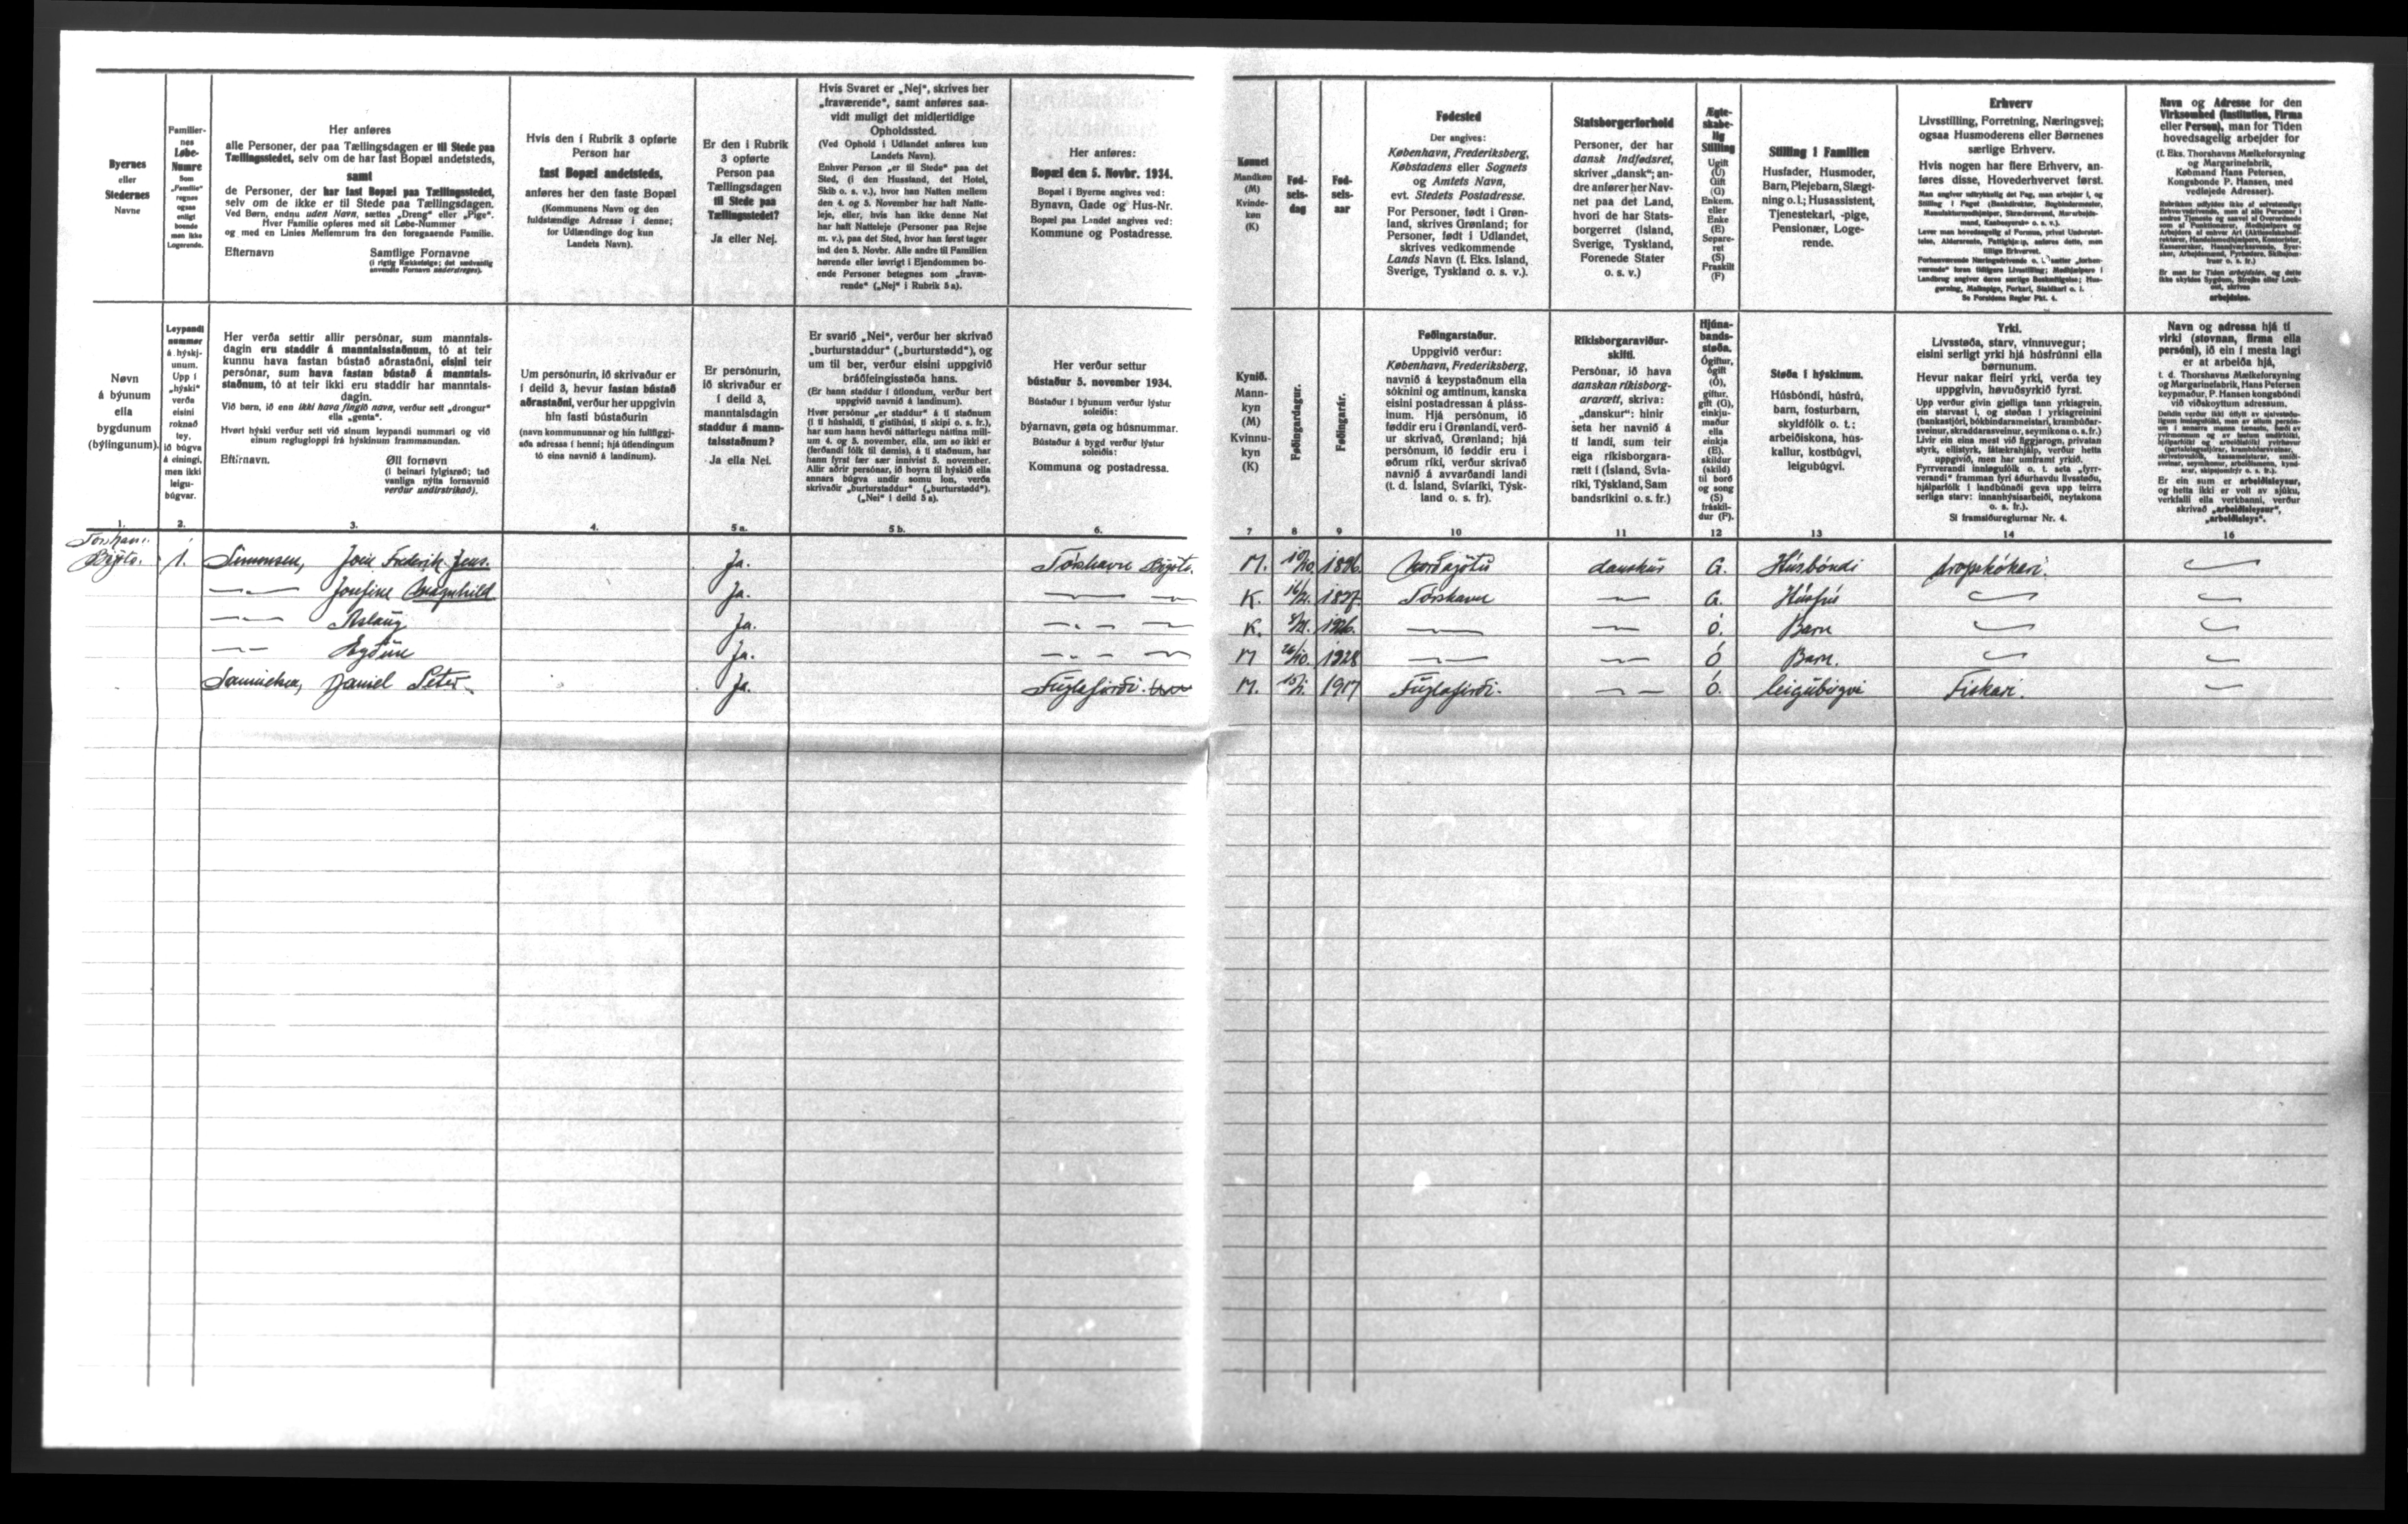 Byernes
eller
Stedernes
Navne
Familier-
nes
Løbe-
Numre
Som
„Familie“
regnes
ogsaa
enligt
boende
men ikke
Logerende.
Her anføres
alle Personer, der paa Tællingsdagen er til Stede paa
Tællingsstedet, selv om de har fast Bopæl andetsteds,
samt
de Personer, der har fast Bopæl paa Tællingsstedet,
selv om de ikke er til Stede paa Tællingsdagen.
Ved Børn, endnu uden Navn, sættes „Dreng“ eller „Pige“.
Hver Familie opføres med sit Løbe-Nummer
og med en Linies Mellemrum fra den foregaaende Familie.
Efternavn Samtlige Fornavne
(i rigtig Rækkefølge; det sædvanlig
anvendte Fornavn understreges).
Hvis den i Rubrik 3 opførte
Person har
fast Bopæl andetsteds,
anføres her den faste Bopæl
(Kommunens Navn og den
fuldstændige Adresse i denne;
for Udlændinge dog kun
Landets Navn).
Er den i Rubrik
3 opførte
Person paa
Tællingsdagen
til Stede paa
Tællingsstedet?
Ja eller Nej.
Hvis Svaret er „Nej“, skrives her
„fraværende“, samt anføres saa-
vidt muligt det midlertidige
Opholdssted.
(Ved Ophold i Udlandet anføres kun
Landets Navn).
Enhver Person „er til Stede“ paa det
Sted, (i den Husstand, det Hotel,
Skib o. s. v.), hvor han Natten mellem
den 4. og 5. November har haft Natte-
leje, eller, hvis han ikke denne Nat
har haft Natteleje (Personer paa Rejse
m. v.), paa det Sted, hvor han først tager
ind den 5. Novbr. Alle andre til Familien
hørende eller iøvrigt i Ejendommen bo-
ende Personer betegnes som „fravæ-
rende“ („Nej“ i Rubrik 5a).
Her anføres:
Bopæl den 5. Novbr. 1934.
Bopæl i Byerne angives ved:
Bynavn, Gade og Hus-Nr.
Bopæl paa Landet angives ved:
Kommune og Postadresse.
Kønnet
Mandkøn
(M)
Kvinde-
køn
(K)
Fød-
sels-
dag
Fød-
sels-
aar
Fødested
Der angives:
København, Frederiksberg,
Købstadens eller Sognets
og Amtets Navn,
evt. Stedets Postadresse.
For Personer, født i Grøn-
land, skrives Grønland; for
Personer, født i Udlandet,
skrives vedkommende
Lands Navn (f. Eks. Island,
Sverige, Tyskland o. s. v.).
Statsborgerforhold
Personer, der har
dansk Indfødsret,
skriver „dansk“; an-
dre anfører her Nav-
net paa det Land,
hvori de har Stats-
borgerret (Island,
Sverige, Tyskland,
Forenede Stater
o. s. v.)
Ægte-
skabe-
lig
Stilling
Ugift
(U)
Gift
(G)
Enkem.
eller
Enke
(E)
Separe-
ret
(S)
Fraskilt
(F)
Stilling i Familien
Husfader, Husmoder,
Barn, Plejebarn, Slægt-
ning o. l.; Husassistent,
Tjenestekarl, -pige,
Pensionær, Loge-
rende.
Erhverv
Livsstilling, Forretning, Næringsvej;
ogsaa Husmoderens eller Børnenes
særlige Erhverv.
Hvis nogen har flere Erhverv, an-
føres disse, Hovederhvervet først.
Se Forsidens Regler Pkt. 4.
Navn og Adresse for den
Virksomhed (Institution, Firma
eller Person), man for Tiden
hovedsagelig arbejder for
(f. Eks. Thorshavns Mælkeforsyning
og Margarinefabrik,
Købmand Hans Petersen,
Kongsbonde P. Hansen, med
vedføjede Adresser).
arbejdsløs.
Nøvn
á býunum
ella
bygdunum
(býlingunum).
Leypandi
nummer
á hýskj-
unum.
Upp í
„hýski“
verða
eisini
roknað
tey,
ið búgva
á einingi,
men ikki
leigu-
búgvar.
Her verða settir allir persónar, sum manntals-
dagin eru staddir á manntalsstaðnum, tó at teir
kunnu hava fastan bústað aðrastaðni, eisini teir
persónar, sum hava fastan bústað á manntals-
staðnum, tó at teir ikki eru staddir har manntals-
dagin.
Við børn, ið enn ikki hava fingið navn, verður sett „drongur“
ella „genta“.
Hvørt hýski verður sett við sínum leypandi nummari og við
einum reglugloppi frá hýskinum frammanundan.
Eftirnavn. Øll fornøvn
(í beinari fylgisrøð; tað
vanliga nýtta fornavnið
verður undirstrikað).
Um persónurin, ið skrivaður er
í deild 3, hevur fastan bústað
aðrastaðni, verður her uppgivin
hin fasti bústaðurin
(navn kommununnar og hin fullfíggj-
aða adressa í henni; hjá útlendingum
tó eina navnið á landinum).
Er persónurin,
ið skrivaður er
í deild 3,
manntalsdagin
staddur á mann-
talsstaðnum?
Ja ella Nei.
Er svarið „Nei“, verður her skrivað
„burturstaddur“ („burturstødd“), og
um til ber, verður eisini uppgivið
bráðfeingisstøða hans.
(Er hann staddur í útlondum, verður bert
uppgivið navnið á landinum).
Hvør persónur „er staddur“ á tí staðnum
(í tí húshaldi, tí gistihúsi, tí skipi o. s. fr.),
har sum hann hevði náttarlegu náttina mill-
um 4. og 5. november, ella, um so ikki er
(ferðandi fólk til dømis), á tí staðnum, har
hann fyrst fær sær innivist 5. november.
Allir aðrir persónar, ið hoyra til hýskið ella
annars búgva undir somu lon, verða
skrivaðir „burturstaddur“ („burturstødd“).
(„Nei“ í deild 5a).
Her verður settur
bústaður 5. november 1934.
Bústaður í býunum verður lýstur
soleiðis:
býarnavn, gøta og húsnummar.
Bústaður á bygd verður lýstur
soleiðis:
Kommuna og postadressa.
Kynið.
Mann-
kyn
(M)
Kvinnu-
kyn
(K)
Føðingardagur.
Føðingarár.
Føðingarstaður.
Uppgivið verður:
København, Frederiksberg,
navnið á keypstaðnum ella
sóknini og amtinum, kanska
eisini postadressan á pláss-
inum. Hjá persónum, ið
føddir eru í Grønlandi, verð-
ur skrivað, Grønland; hjá
persónum, ið føddir eru í
øðrum ríki, verður skrivað
navnið á avvarðandi landi
(t. d. Ísland, Svíaríki, Týsk-
land o. s. fr).
Ríkisborgaraviður-
skifti.
Persónar, ið hava
danskan ríkisborg-
ararætt, skriva:
„danskur“: hinir
seta her navnið á
tí landi, sum teir
eiga ríkisborgara-
rætt í (Ísland, Svía-
ríki, Týskland, Sam
bandsríkini o. s. fr.)
Hjúna-
bands-
støða.
Ógiftur,
ógift
(Ó),
giftur,
gift (G),
einkju-
maður
ella
einkja
(E),
skildur
(skild)
til borð
og song
(S)
fráskil-
dur (F).
Støða í hýskinum.
Húsbóndi, húsfrú,
barn, fosturbarn,
skyldfólk o. t.:
arbeiðiskona, hús-
kallur, kostbúgvi,
leigubúgvi.
Yrki.
Livsstøða, starv, vinnuvegur;
eisini serligt yrki hjá húsfrúnni ella
børnunum.
Hevur nakar fleiri yrki, verða tey
uppgivin, høvuðsyrkið fyrst.
Sí framsíðureglurnar Nr. 4.
Navn og adressa hjá tí
virki (stovnan, firma ella
persóni), ið ein í mesta lagi
er at arbeiða hjá,
t. d. Thorshavns Mælkeforsyning
og Margarinefabrik, Hans Petersen
keypmaður, P. Hansen kongsbóndi
við viðskoyttum adressum.
Er ein sum er arbeiðsleysur,
og hetta ikki er volt av sjúku,
verkfalli ella verkbanni, verður
skrivað „arbeiðsleysur“,
„arbeiðsleys“.
1. 2. 3. 4. 5a. 5b. 6. 7 8 9 10 11 12 13 14 16
Tórshavn.
1. Simonsen, Frederik Jens. Ja. Tórshavn M. 1896. Norðagøtu danskur G. Húsbóndi
Josefine Magnhild Ja. K. 1897. Tórshavn G. Húsfrú
Aslaug Ja. K. 1926. Ó. Barn
Ja. M 26/10. 1928 Ó Barn.
Samuelsen, Daniel Peter. Ja. Fuglafirði. M. 1917 Fuglafirði. Ó. leigubúgvi Fiskari.